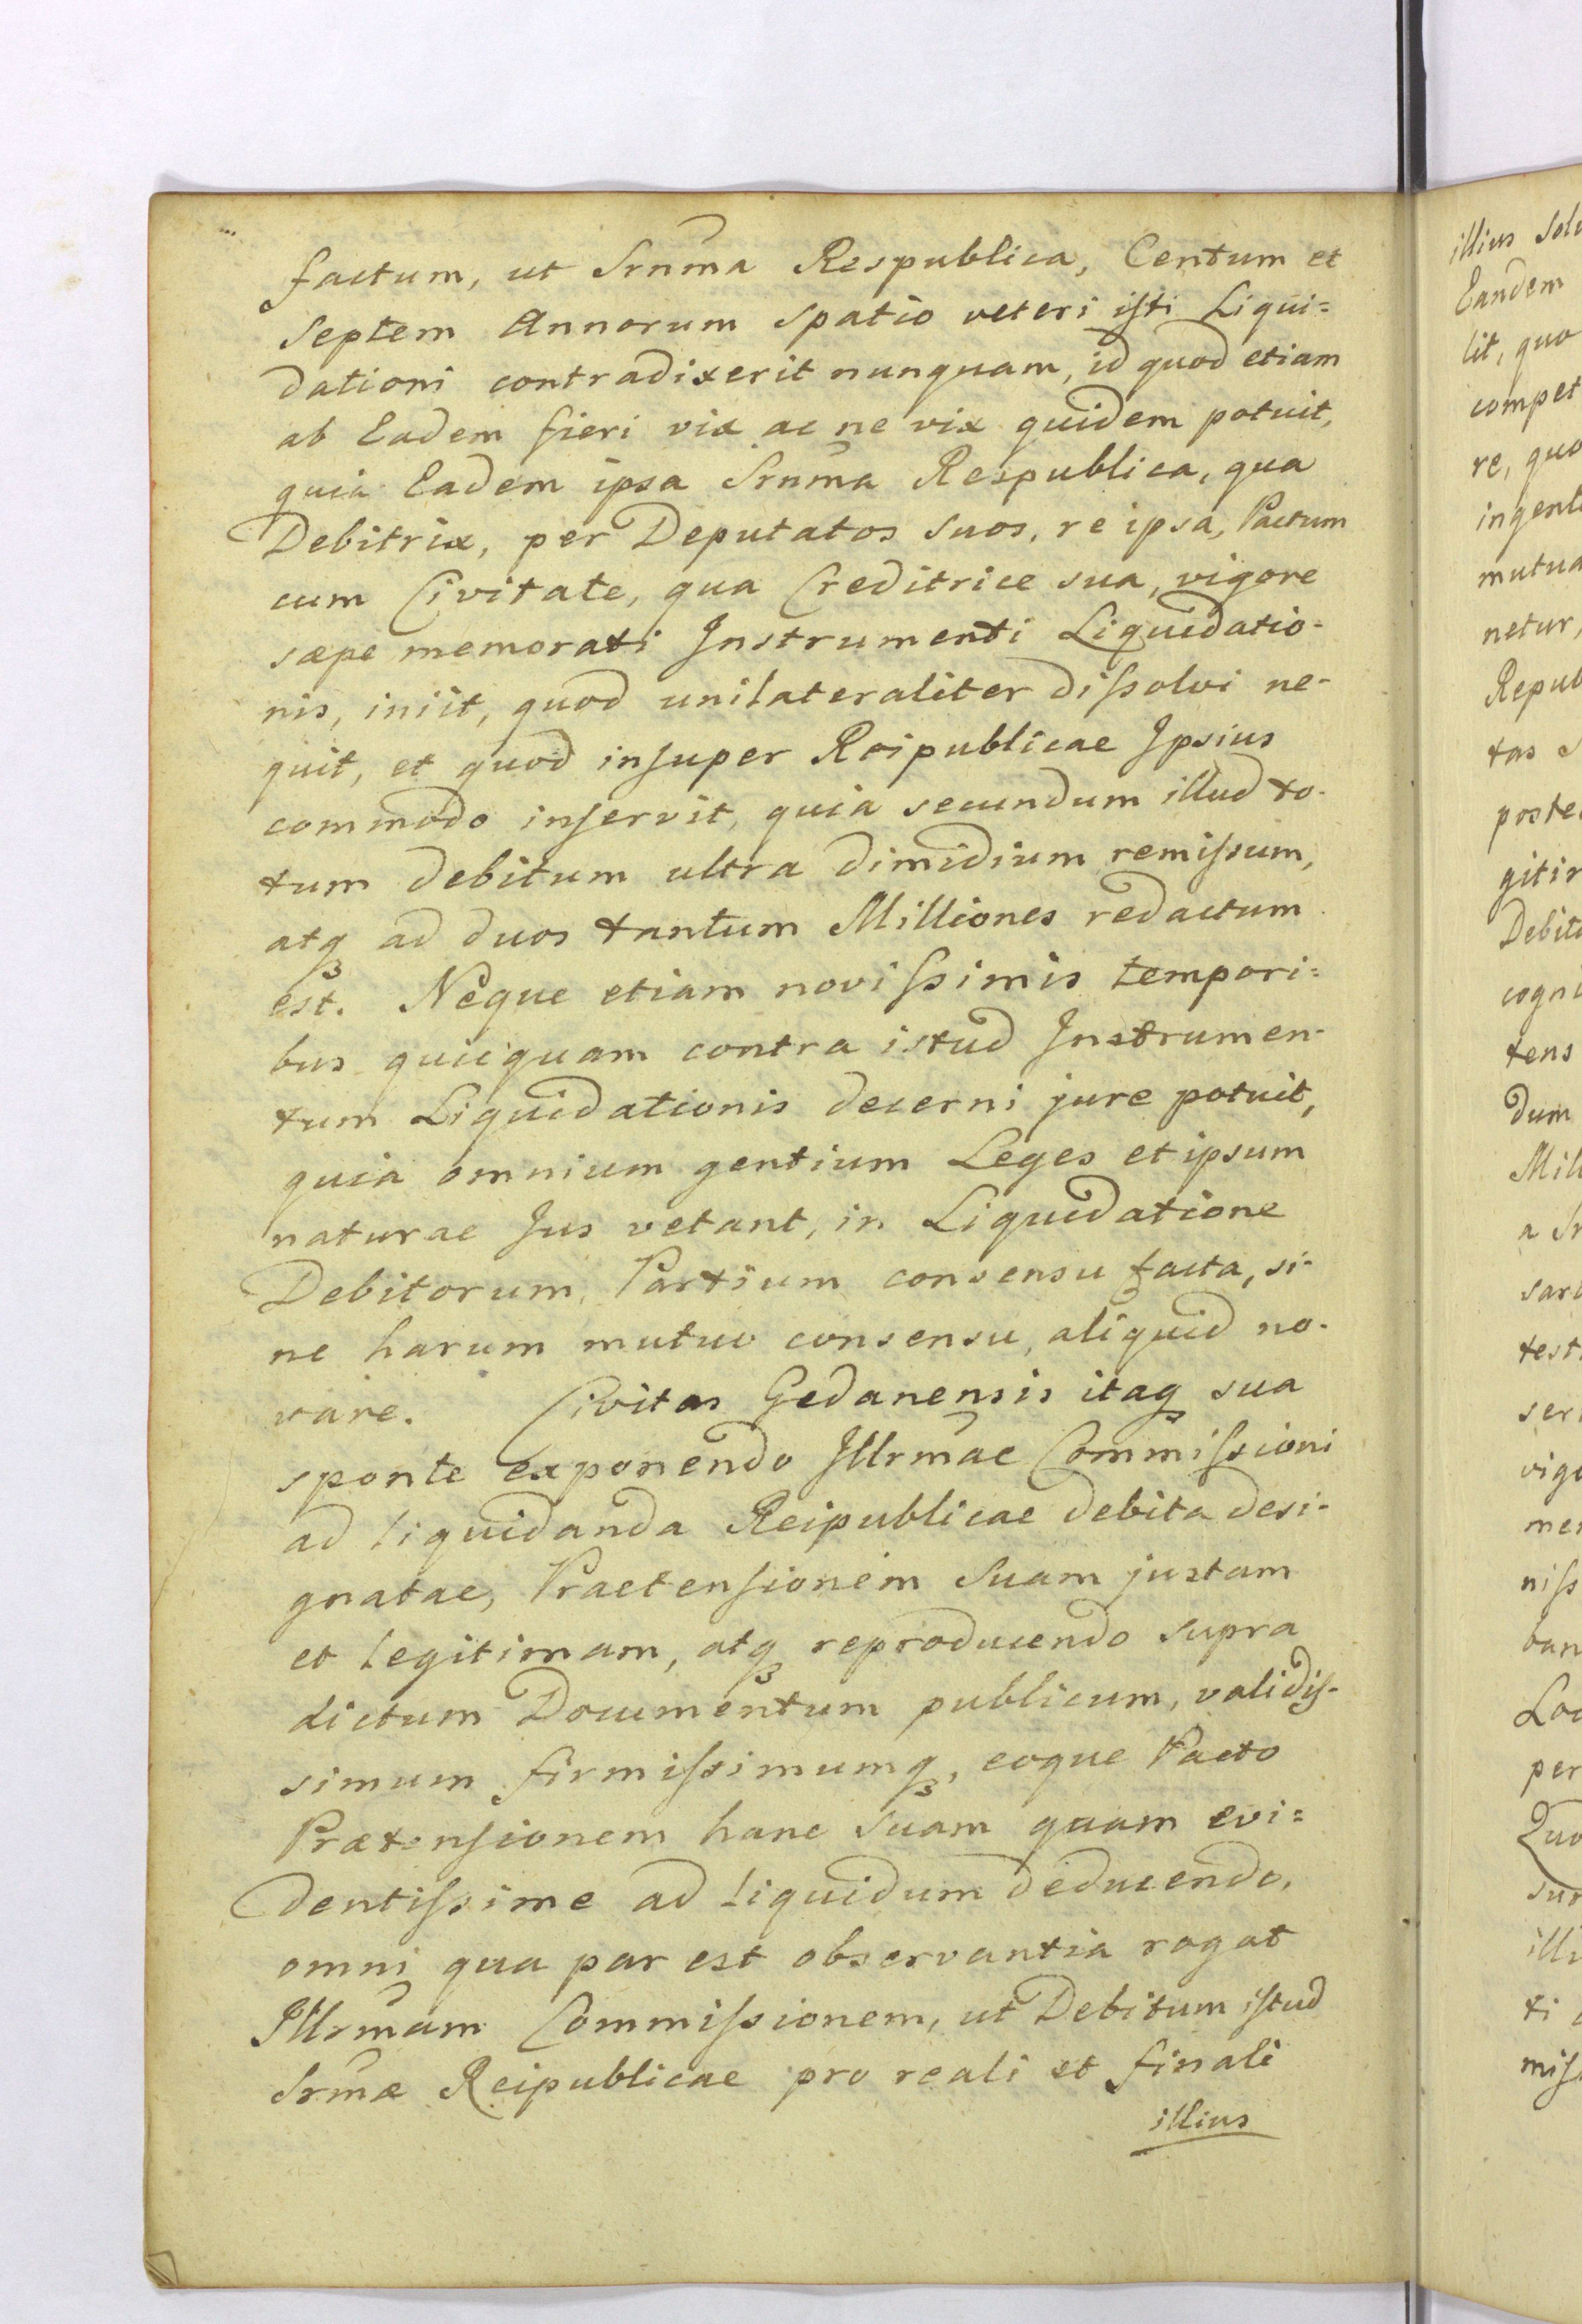 factum, ut Srnma Respublica, Centum et
septem Annorum spatio veteri isti Liqui=
dationi contradixerit nunquam, id quod etiam
ab Eadem fieri vix ac ne vix quidem potuit,
quia Eadem ipsa Srnma Respublica, qua
Debitrix, per Deputatos suos, re ipsa, Pactum
cum Civitate, qua Creditrice sua, vigore
sæpe memorati Instrumenti Liquidatio-
nis, iniit, quod unilateraliter dissolvi ne-
quit, et quod insuper Reipublicae Ipsius
commodo inservit, quia secundum illud to-
tum debitum ultra dimidium remissum,
atq₃ ad duos tantum Milliones redactum
est. Neque etiam novissimis tempori=
bus quicquam contra istud Instrumen-
tum Liquidationis decerni jure potuit,
quia omnium gentium Leges et ipsum
naturae Jus vetant, in Liquidatione
Debitorum, Partium consensu facta, si-
ne harum mutuo consensu, aliquid no-
vare. Civitas Gedanensis itaq₃ sua
sponte exponendo Illrmae Commissioni
ad liquidanda Reipublicae debita desi-
gnatae, Praetensionem Suam justam
et legitimam, atq₃ reproducendo supra
dictum Documentum publicum, validis-
simum firmissimumq₃, eoque Pacto
Prætensionem hanc Suam quam evi=
dentissime ad liquidum deducendo,
omni qua par est observantia rogat
Illrmam Commissionem, ut Debitum istud
Srmæ Reipublicae pro reali et finali
illius
illius
Eandem
lit, quo
compet
re, quo
mutua
netur,
Repub
tas
gitir
Debit
cogni
tens
dum
Mill
test
per